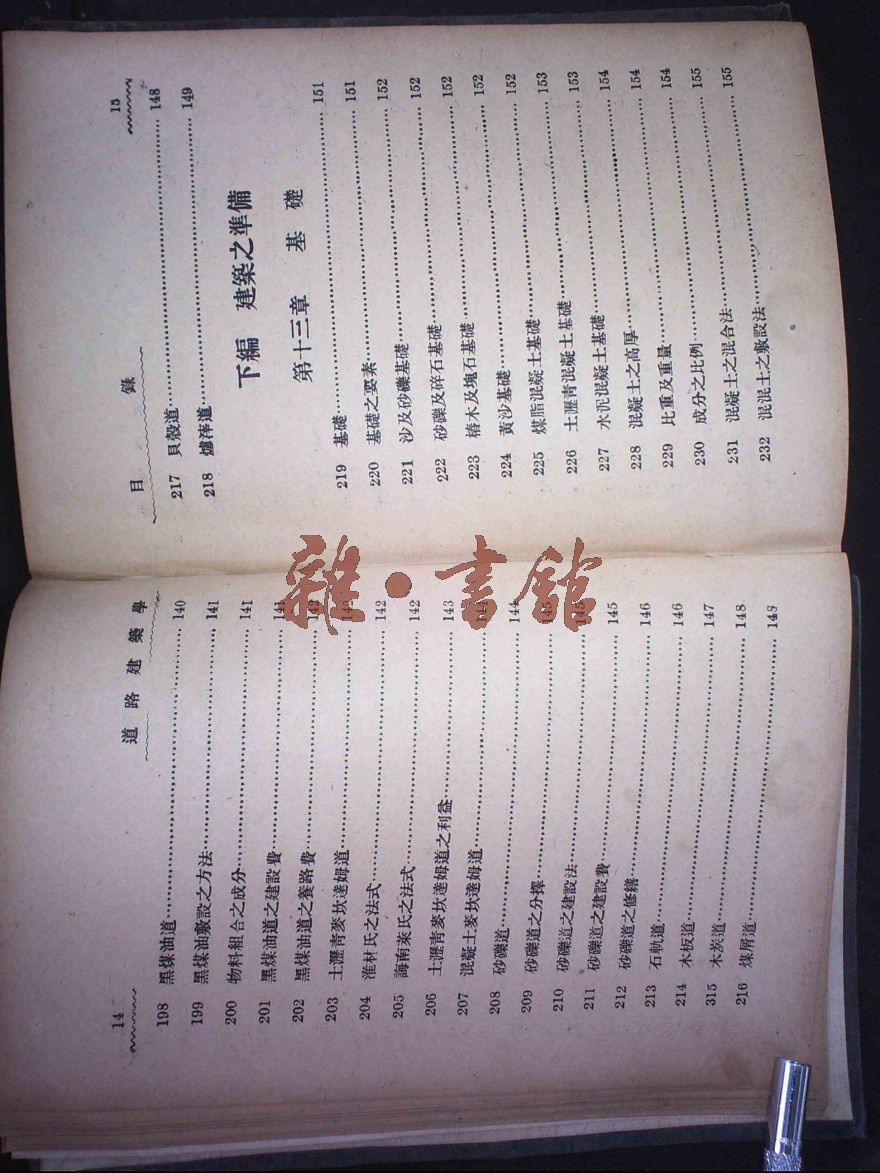 14
道路建築學
198 黑煤油道 140
199 黑煤油敷設之方法 141
200 物料組合之成分 141
201 黑煤油道之建設費
202 黑煤油道之養路費 142
203 土瀝青麥坎達姆道
204 淮材氏之法式 142
205 誨南萊氏之法式 142
206 土瀝青麥坎達姆道之利益 143
207 混凝土麥坎達姆道
208 砂礫道 144
209 砂礫道之分擇
210 砂礫道之建設法
211 砂礫道之建設費 145
212 砂礫道之修繕 146
213 石軌道 146
214 木板道 147
315 木炭道 148
216 煤屑道 148
目錄
15
217 貝殼道 148
218 爐滓道 149
下編 建築之準備
第十三章 基礎
219 基礎 151
220 基礎之要素 151
221 沙及砂礫基礎 152
222 砂礫及碎石基礎 152
223 樁木及塊石基礎 152
224 黃沙基礎 152
225 煤脂混凝土基礎 152
226 土瀝青混凝土基礎 153
227 水泥混凝土基礎 153
228 混凝土之高厚 154
229 比重及重量 154
230 成分之比例 154
231 混凝土之混合法 155
232 混混土之敷設法 155
雜·書館